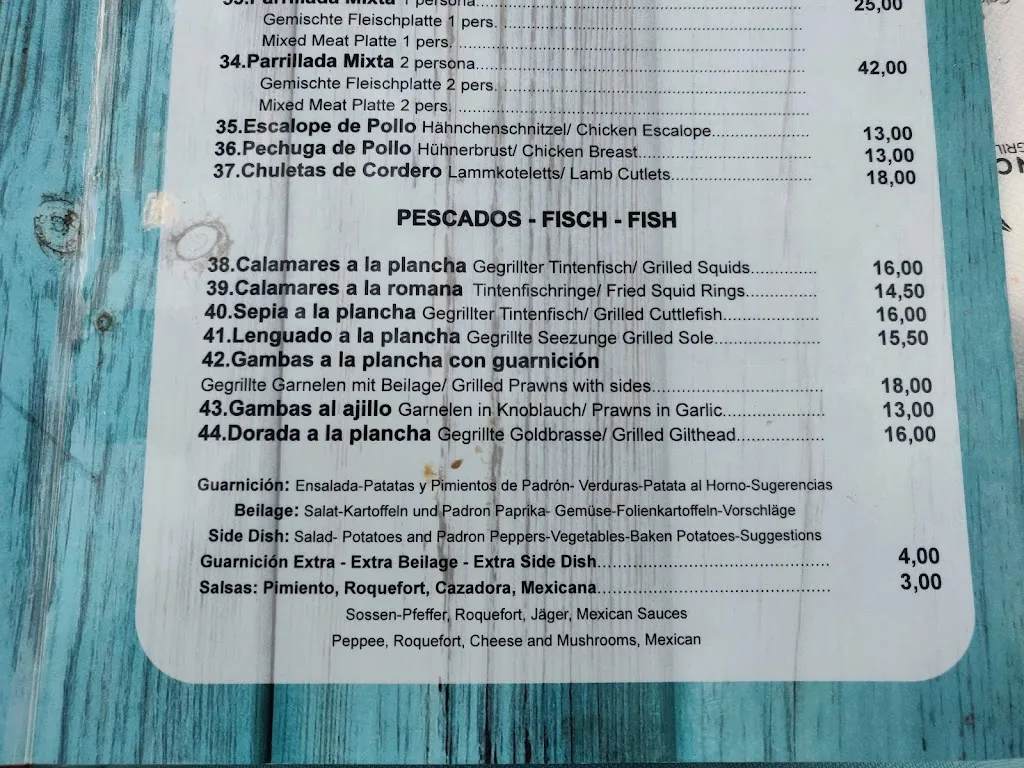 33.Parrillada Mixta 1 persona 25,00
Gemischte Fleischplatte 1 pers.
Mixed Meat Platte 1 pers.
34.Parrillada Mixta 2 persona 42,00
Gemischte Fleischplatte 2 pers.
Mixed Meat Platte 2 pers.
35.Escalope de Pollo Hähnchenschnitzel/ Chicken Escalope 13,00
36.Pechuga de Pollo Hühnerbrust/ Chicken Breast 13,00
37.Chuletas de Cordero Lammkoteletts/ Lamb Cutlets 18,00
PESCADOS - FISCH - FISH
38.Calamares a la plancha Gegrillter Tintenfisch/ Grilled Squids 16,00
39.Calamares a la romana Tintenfischringe/ Fried Squid Rings 14,50
40.Sepia a la plancha Gegrillter Tintenfisch/ Grilled Cuttlefish 16,00
41.Lenguado a la plancha Gegrillte Seezunge Grilled Sole 15,50
42.Gambas a la plancha con guarnición
Gegrillte Garnelen mit Beilage/ Grilled Prawns with sides 18,00
43.Gambas al ajillo Garnelen in Knoblauch/ Prawns in Garlic 13,00
44.Dorada a la plancha Gegrillte Goldbrasse/ Grilled Gilthead 16,00
Guarnición: Ensalada-Patatas y Pimientos de Padrón- Verduras-Patata al Horno-Sugerencias
Beilage: Salat-Kartoffeln und Padron Paprika- Gemüse-Folienkartoffeln-Vorschläge
Side Dish: Salad- Potatoes and Padron Peppers-Vegetables-Baken Potatoes-Suggestions
Guarnición Extra - Extra Beilage - Extra Side Dish 4,00
Salsas: Pimiento, Roquefort, Cazadora, Mexicana 3,00
Sossen-Pfeffer, Roquefort, Jäger, Mexican Sauces
Peppee, Roquefort, Cheese and Mushrooms, Mexican